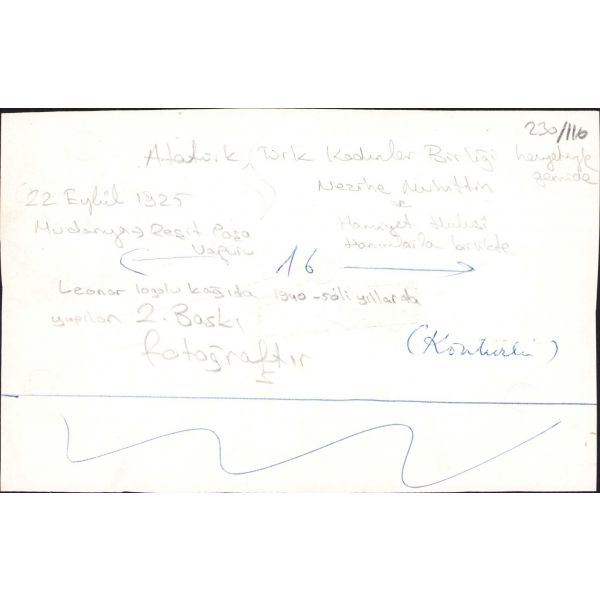 230/116
Atatürk, Türk Kadınlar Birliği heyetiyle
gemide
Nezihe Muhittin
ve
(22 Eylül 1925)
Hamiyet Hulusi
Mudanya, Reşit Paşa
Hanımlarla birlikte
Vapuru
16
Leonar logolu kağıda 1940-50li yıllarda
yapılan 2. Baskı
fotoğraftır
(Kontürlü)